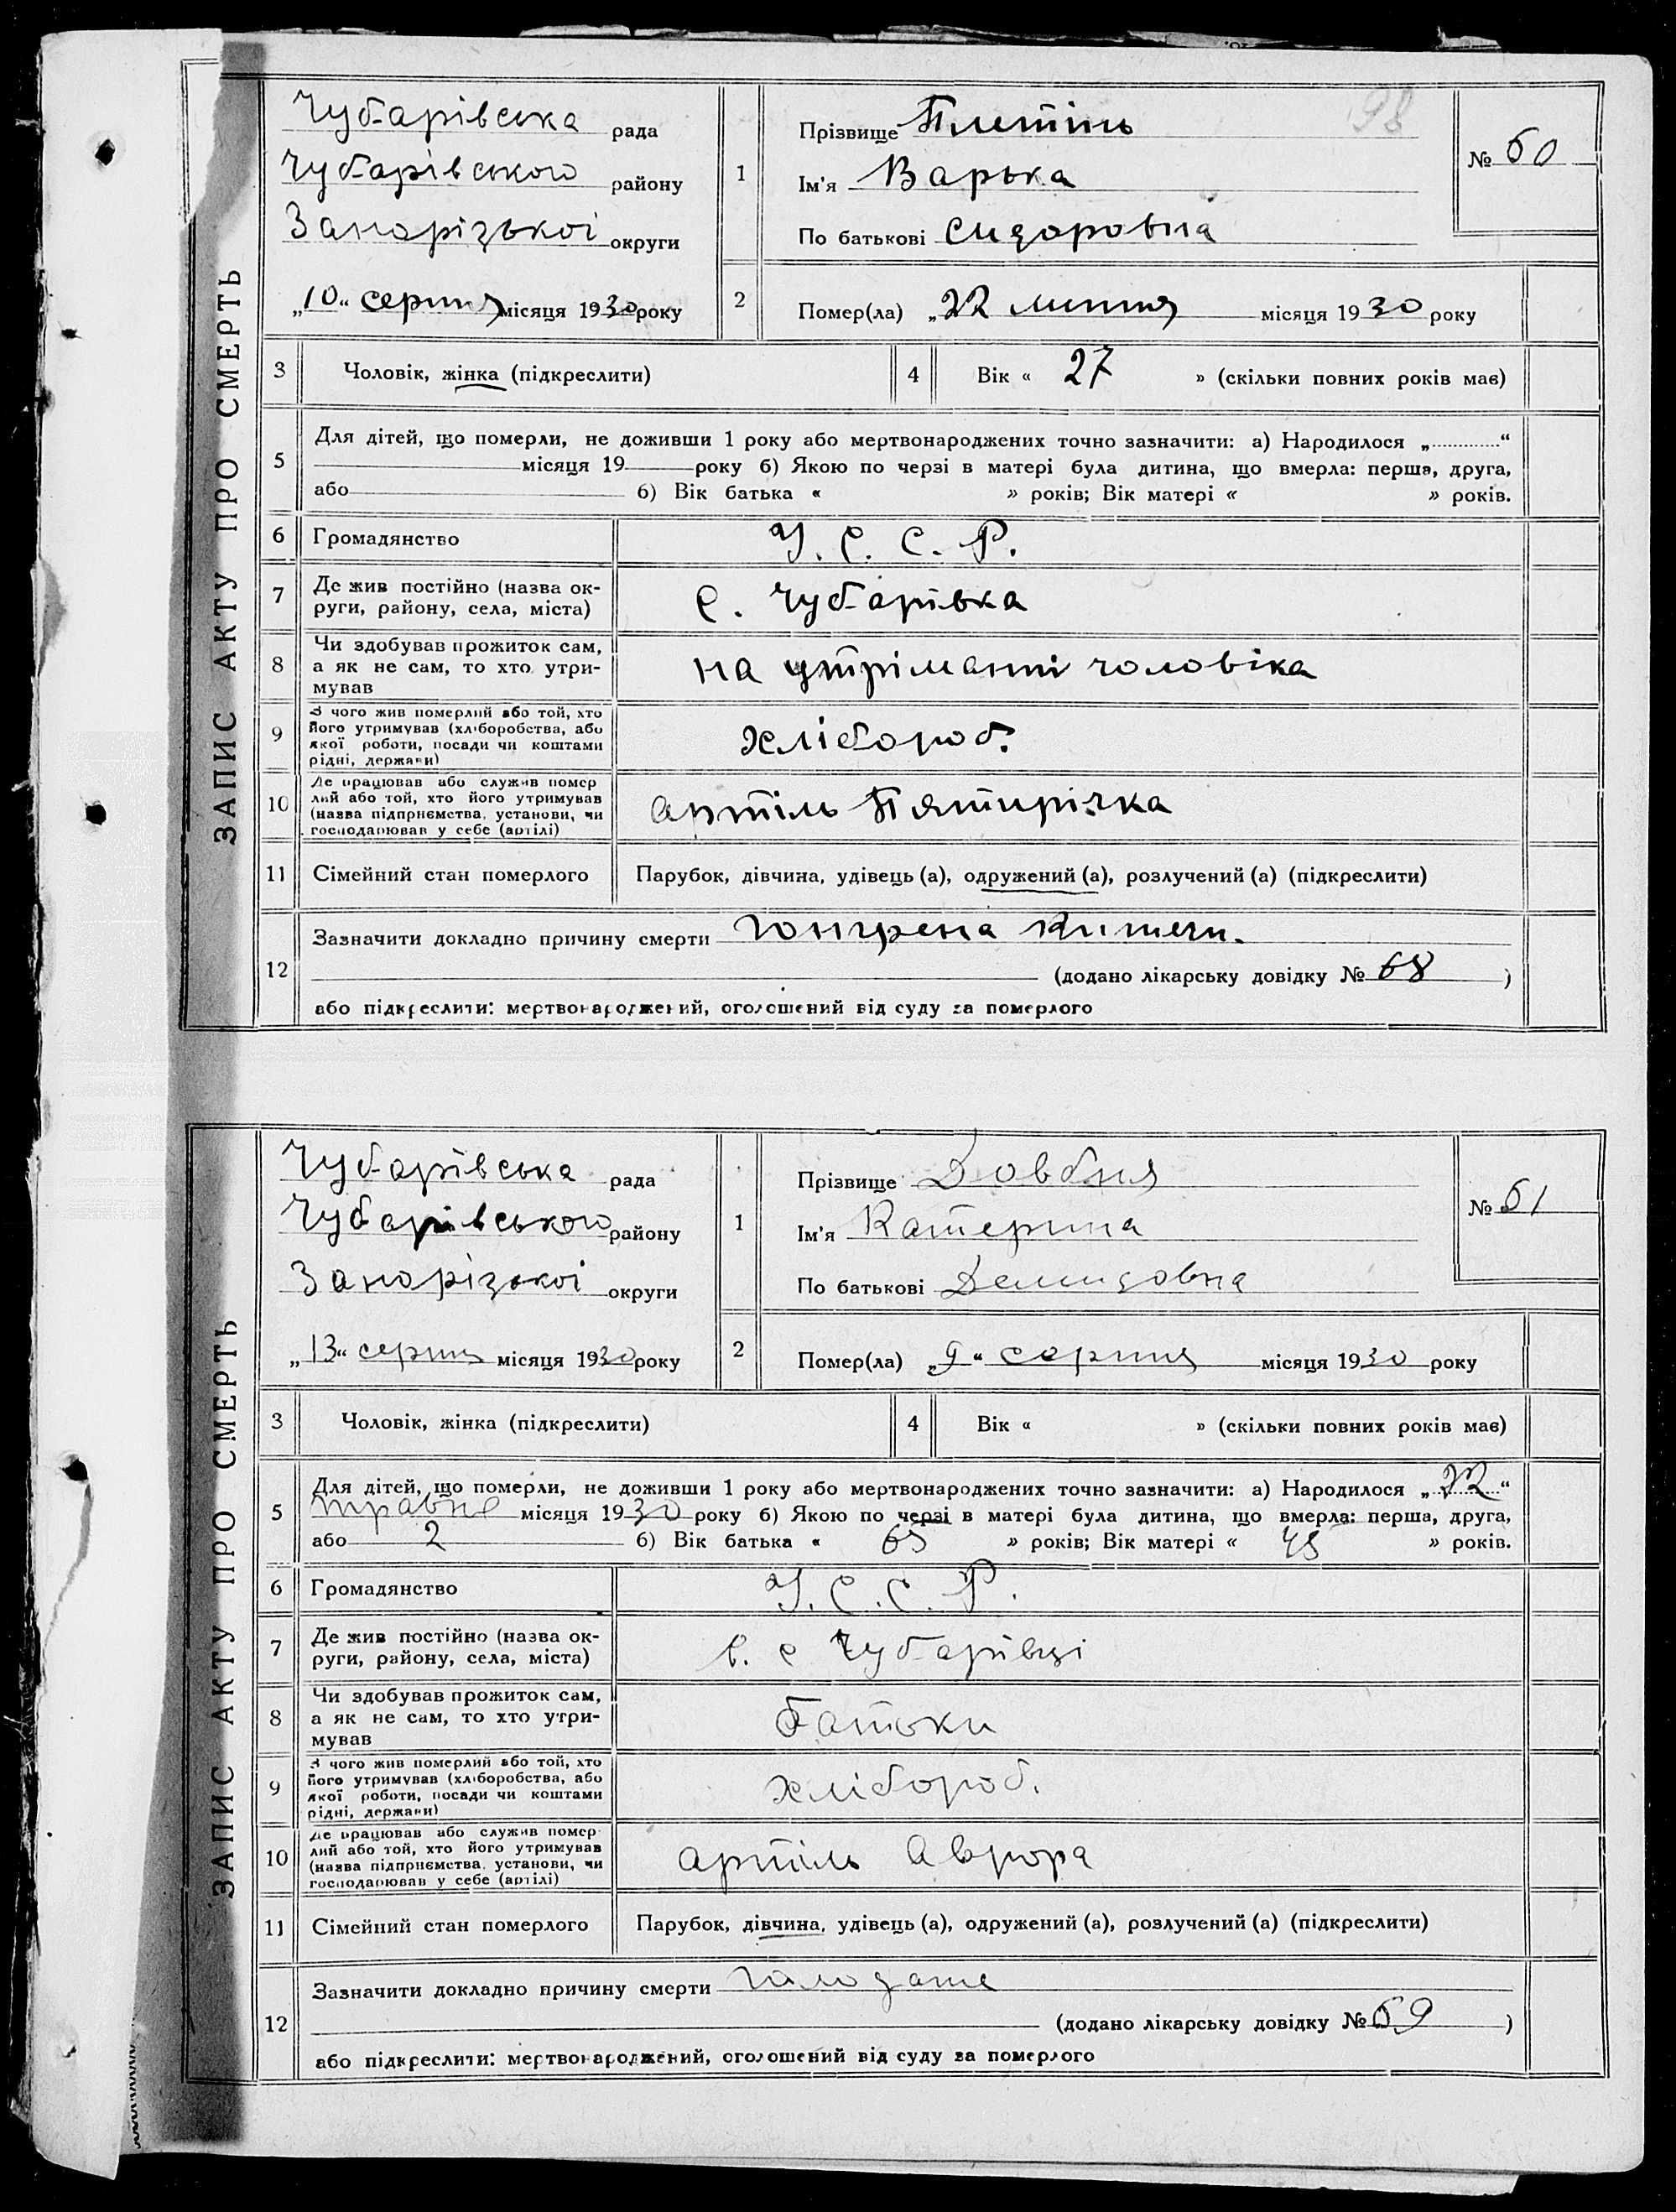 98
ЗАПИС АКТУ ПРО СМЕРТЬ
Чубарівська рада
Чубарівського району
Запорізької округи
„10“ серпня місяця 1930 року
1
Прізвище Плетінь
Ім'я Варька
По батькові Сидоровна
№ 60
2
Помер(ла) „22 липня місяця 1930 року
3 Чоловік, жінка (підкреслити)
4 Вік « 27 » (скільки повних років має)
5 Для дітей, що померли, не доживши 1 року або мертвонароджених точно зазначити: а) Народилося „ “
місяця 19 року б) Якою по черзі в матері була дитина, що вмерла: перша, друга,
або б) Вік батька « » років; Вік матері « » років.
6 Громадянство У. С. С. Р.
7 Де жив постійно (назва ок-
руги, району, села, міста) с. Чубарівка
8 Чи здобував прожиток сам,
а як не сам, то хто утри-
мував на утріманні чоловіка
9 З чого жив померлий або той, хто
його утримував (хліборобства, або
якої роботи, посади чи коштами
рідні, держави) хлібороб.
10 Де працював або служив помер
лий або той, хто його утримував
(назва підприємства, установи, чи
господарював у себе (артілі) артіль Пятирічка
11 Сімейний стан померлого Парубок, дівчина, удівець (а), одружений (а), розлучений (а) (підкреслити)
12 Зазначити докладно причину смерти гонгрена
(додано лікарську довідку № 68 )
або підкреслити: мертвонароджений, оголошений від суду за померлого
ЗАПИС АКТУ ПРО СМЕРТЬ
Чубарівська рада
Чубарівського району
Запорізької округи
„13“ серпня місяця 1930 року
1
Прізвище Довбня
Ім'я Катерина
По батькові Демидовна
№ 61
2
Помер(ла) „9“ серпня місяця 1930 року
3 Чоловік, жінка (підкреслити)
4 Вік « » (скільки повних років має)
5 Для дітей, що померли, не доживши 1 року або мертвонароджених точно зазначити: а) Народилося „22“
травне місяця 1930 року б) Якою по черзі в матері була дитина, що вмерла: перша, друга,
або 2 б) Вік батька « 65 » років; Вік матері « 45 » років.
6 Громадянство У. С. С. Р.
7 Де жив постійно (назва ок-
руги, району, села, міста) в. с Чубарівці
8 Чи здобував прожиток сам,
а як не сам, то хто утри-
мував батьки
9 З чого жив померлий або той, хто
його утримував (хліборобства, або
якої роботи, посади чи коштами
рідні, держави) хлібороб.
10 Де працював або служив помер
лий або той, хто його утримував
(назва підприємства, установи, чи
господарював у себе (артілі) артіль Аврора
11 Сімейний стан померлого Парубок, дівчина, удівець (а), одружений (а), розлучений (а) (підкреслити)
12 Зазначити докладно причину смерти
(додано лікарську довідку № 69 )
або підкреслити: мертвонароджений, оголошений від суду за померлого